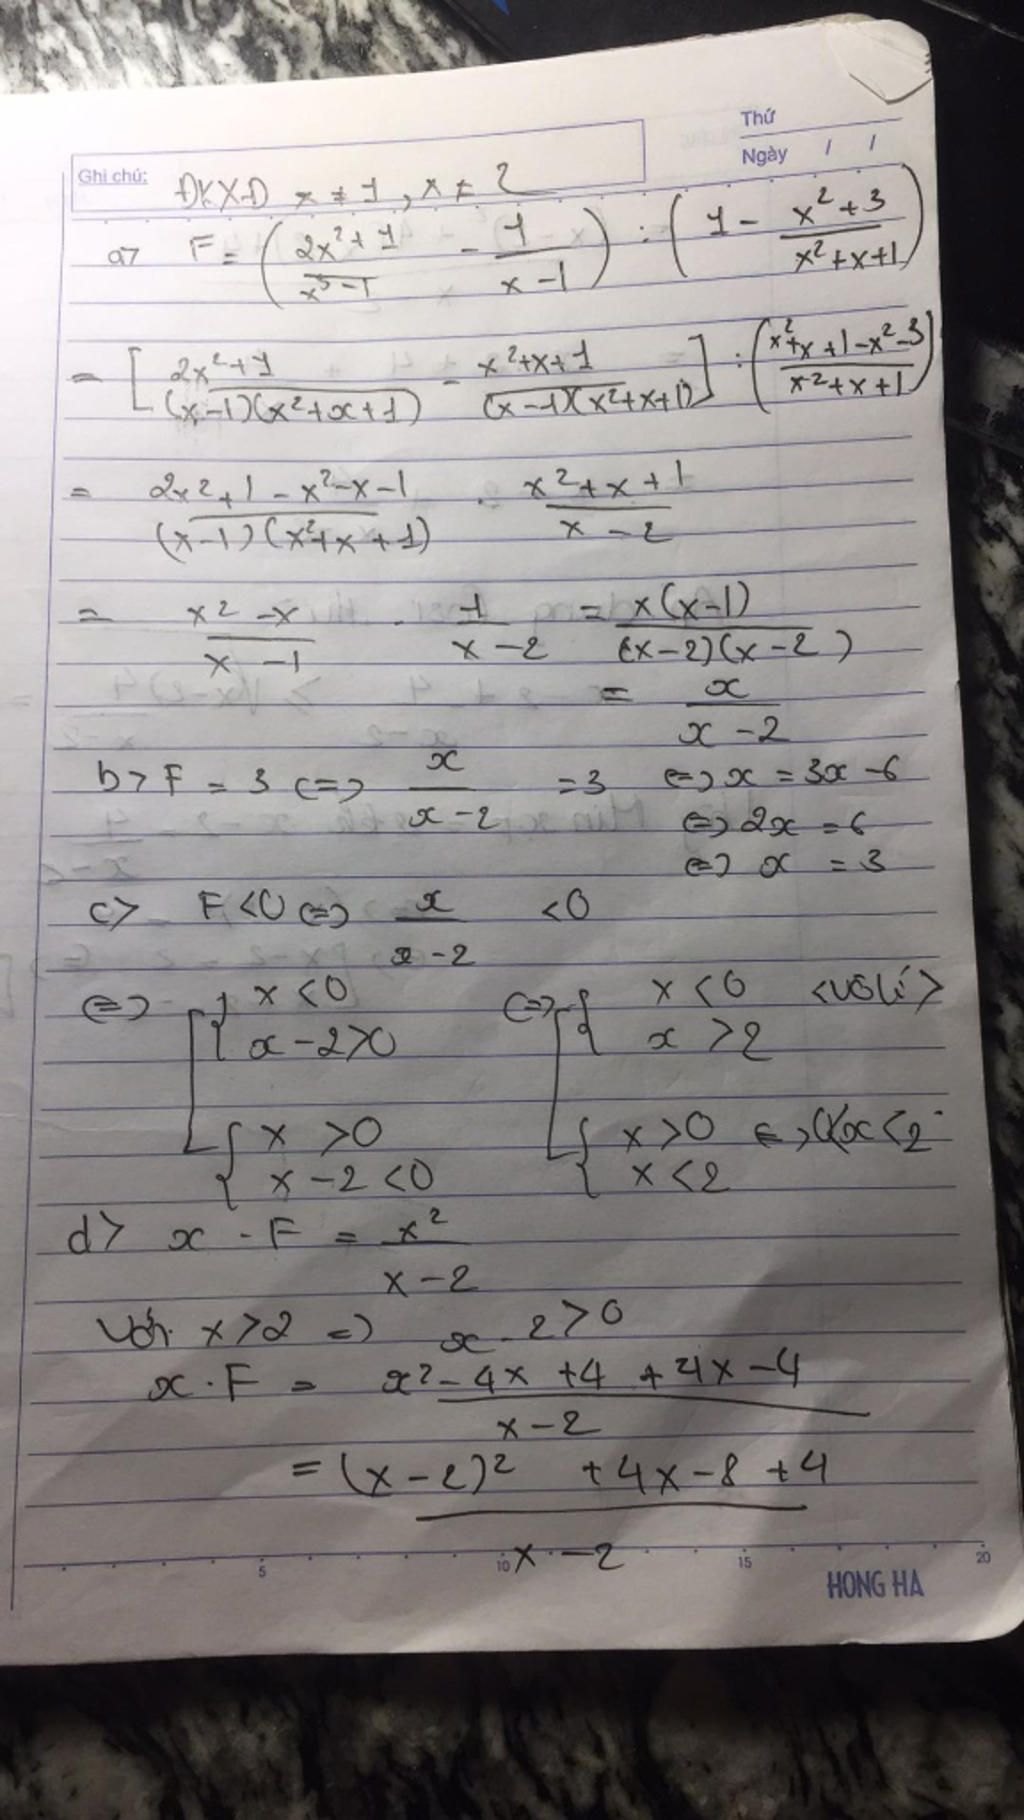 Thứ
Ngày / /
Ghi chú: ĐKXĐ x ≠ 1, x ≠ 2
a> F = ( (2x² + 1)/(x³ - 1) - 1/(x - 1) ) : ( 1 - (x² + 3)/(x² + x + 1) )
= [ (2x² + 1)/((x-1)(x² + x + 1)) - (x² + x + 1)/((x-1)(x² + x + 1)) ] : ( (x² + x + 1 - x² - 3)/(x² + x + 1) )
= (2x² + 1 - x² - x - 1)/((x-1)(x² + x + 1)) . (x² + x + 1)/(x - 2)
= (x² - x)/(x - 1) . 1/(x - 2) = x(x-1)/((x-2)(x-2))
= x/(x - 2)
b> F = 3 <=> x/(x - 2) = 3 <=> x = 3x - 6
<=> 2x = 6
<=> x = 3
c> F < 0 <=> x/(x - 2) < 0
<=> [ { x < 0 <=> [ { x < 0 <vô lí>
x - 2 > 0 x > 2
{ x > 0 { x > 0 <=> 0 < x < 2
x - 2 < 0 x < 2
d> x . F = x²/(x - 2)
Với x > 2 => x - 2 > 0
x . F = (x² - 4x + 4 + 4x - 4)/(x - 2)
= ((x - 2)² + 4x - 8 + 4)/(x - 2)
5 10 15 20
HONG HA